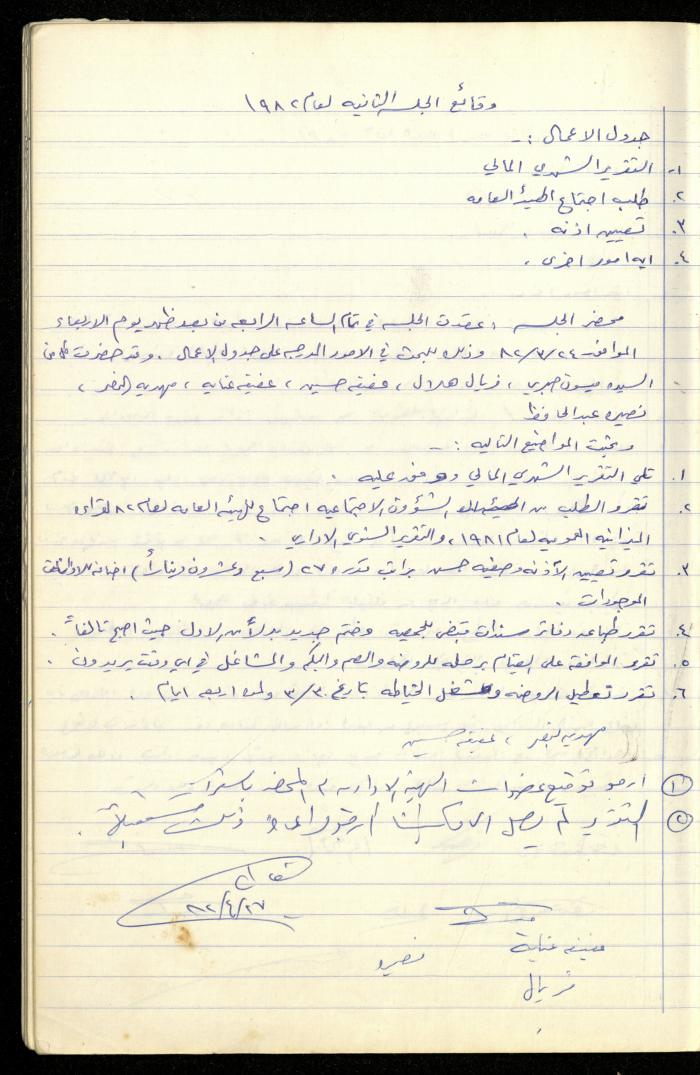 وقائع الجلسه الثانيه لعام ١٩٨٢
جدول الاعمال :-
١- التقرير الشهري المالي
٢. طلب اجتماع الهيئه العامه
٣. تعيين اذنه .
٤. ايه امور اخرى .
محضر الجلسه : عقدت الجلسه في تمام الساعه الرابعه من بعد ظهر يوم الاربعاء
الموافق ٨٢/٣/٢٤ وذلك للبحث في الامور المدرجه على جدول الاعمال . وقد حضرت كل من
السيده ميسون صبري ، فريال هلال ، عفيفه حسين ، عفيفه عنايه ، مهديه ،
نصيره عبد الحافظ
وبحثت المواضيع التاليه :-
١. تلي التقرير الشهري المالي ووفق عليه .
٢. تقرر الطلب من الشؤون الاجتماعيه اجتماع للهيئه العامه لعام ٨٢ لقراءه
الميزانيه العموميه لعام ١٩٨١ ، والتقرير السنوي الاداري .
٣. تقرر تعيين الآذنه وصفيه حسن براتب قدره ٢٧ (سبع وعشرون ديناراً) اضافه
الموجودات .
٤. تقرر طباعه دفاتر سندات قبض للجمعيه وختم جديد بدلاً من الاول حيث اصبح تالفاً .
٥. تقرر الموافقة على القيام برحله للروضه والصم والبكم والمشاغل في اي وقت يريدون .
٦. تقرر تعطيل الروضه ومشغل الخياطه بتاريخ ٣/٣٠ ولمده اربعه ايام .
مهديه ، عفيفه حسين
١ ارجو توقيع عضوات الهيئة الاداريه المحضر باستمرار
٢ التقرير لم يصل الى ارجو مراعاة ذلك مستقبلاً .
٨٢/٤/٢٧
عفيفه عناية
نصيره
فريال